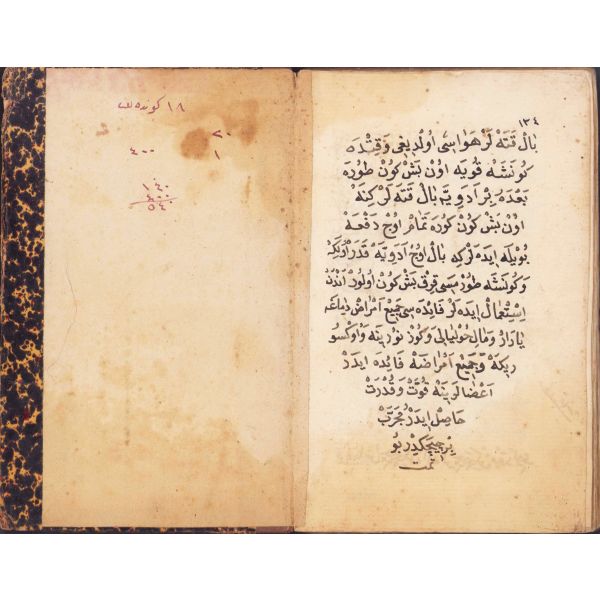 ١٣٤
بال قته لر هواسی اولدیغی وقتده
کونشه قویه اون بش کون طوره
بعده بر ادویه بال قته لر کنه
اون بش کون کوره تمام اوچ دفعه
بویله ایده لر که بال اوچ ادویه قدر اوله
و کونشه طورمسی قرق بش کون اولور اندن
استعمال ایده لر فائده سی جمیع امراض دماغه
یارار و مالیخولیایی و کوز نورینه و اوکسو
ریکه و جمیع امراضه فائده ایدر
اعضالرینه قوت و قدرت
حاصل ایدر مجرب
بو
تمت
١٨ کونده
٢٠
٤٠٠ ١
١٤٠
٤٠٠
٥٤